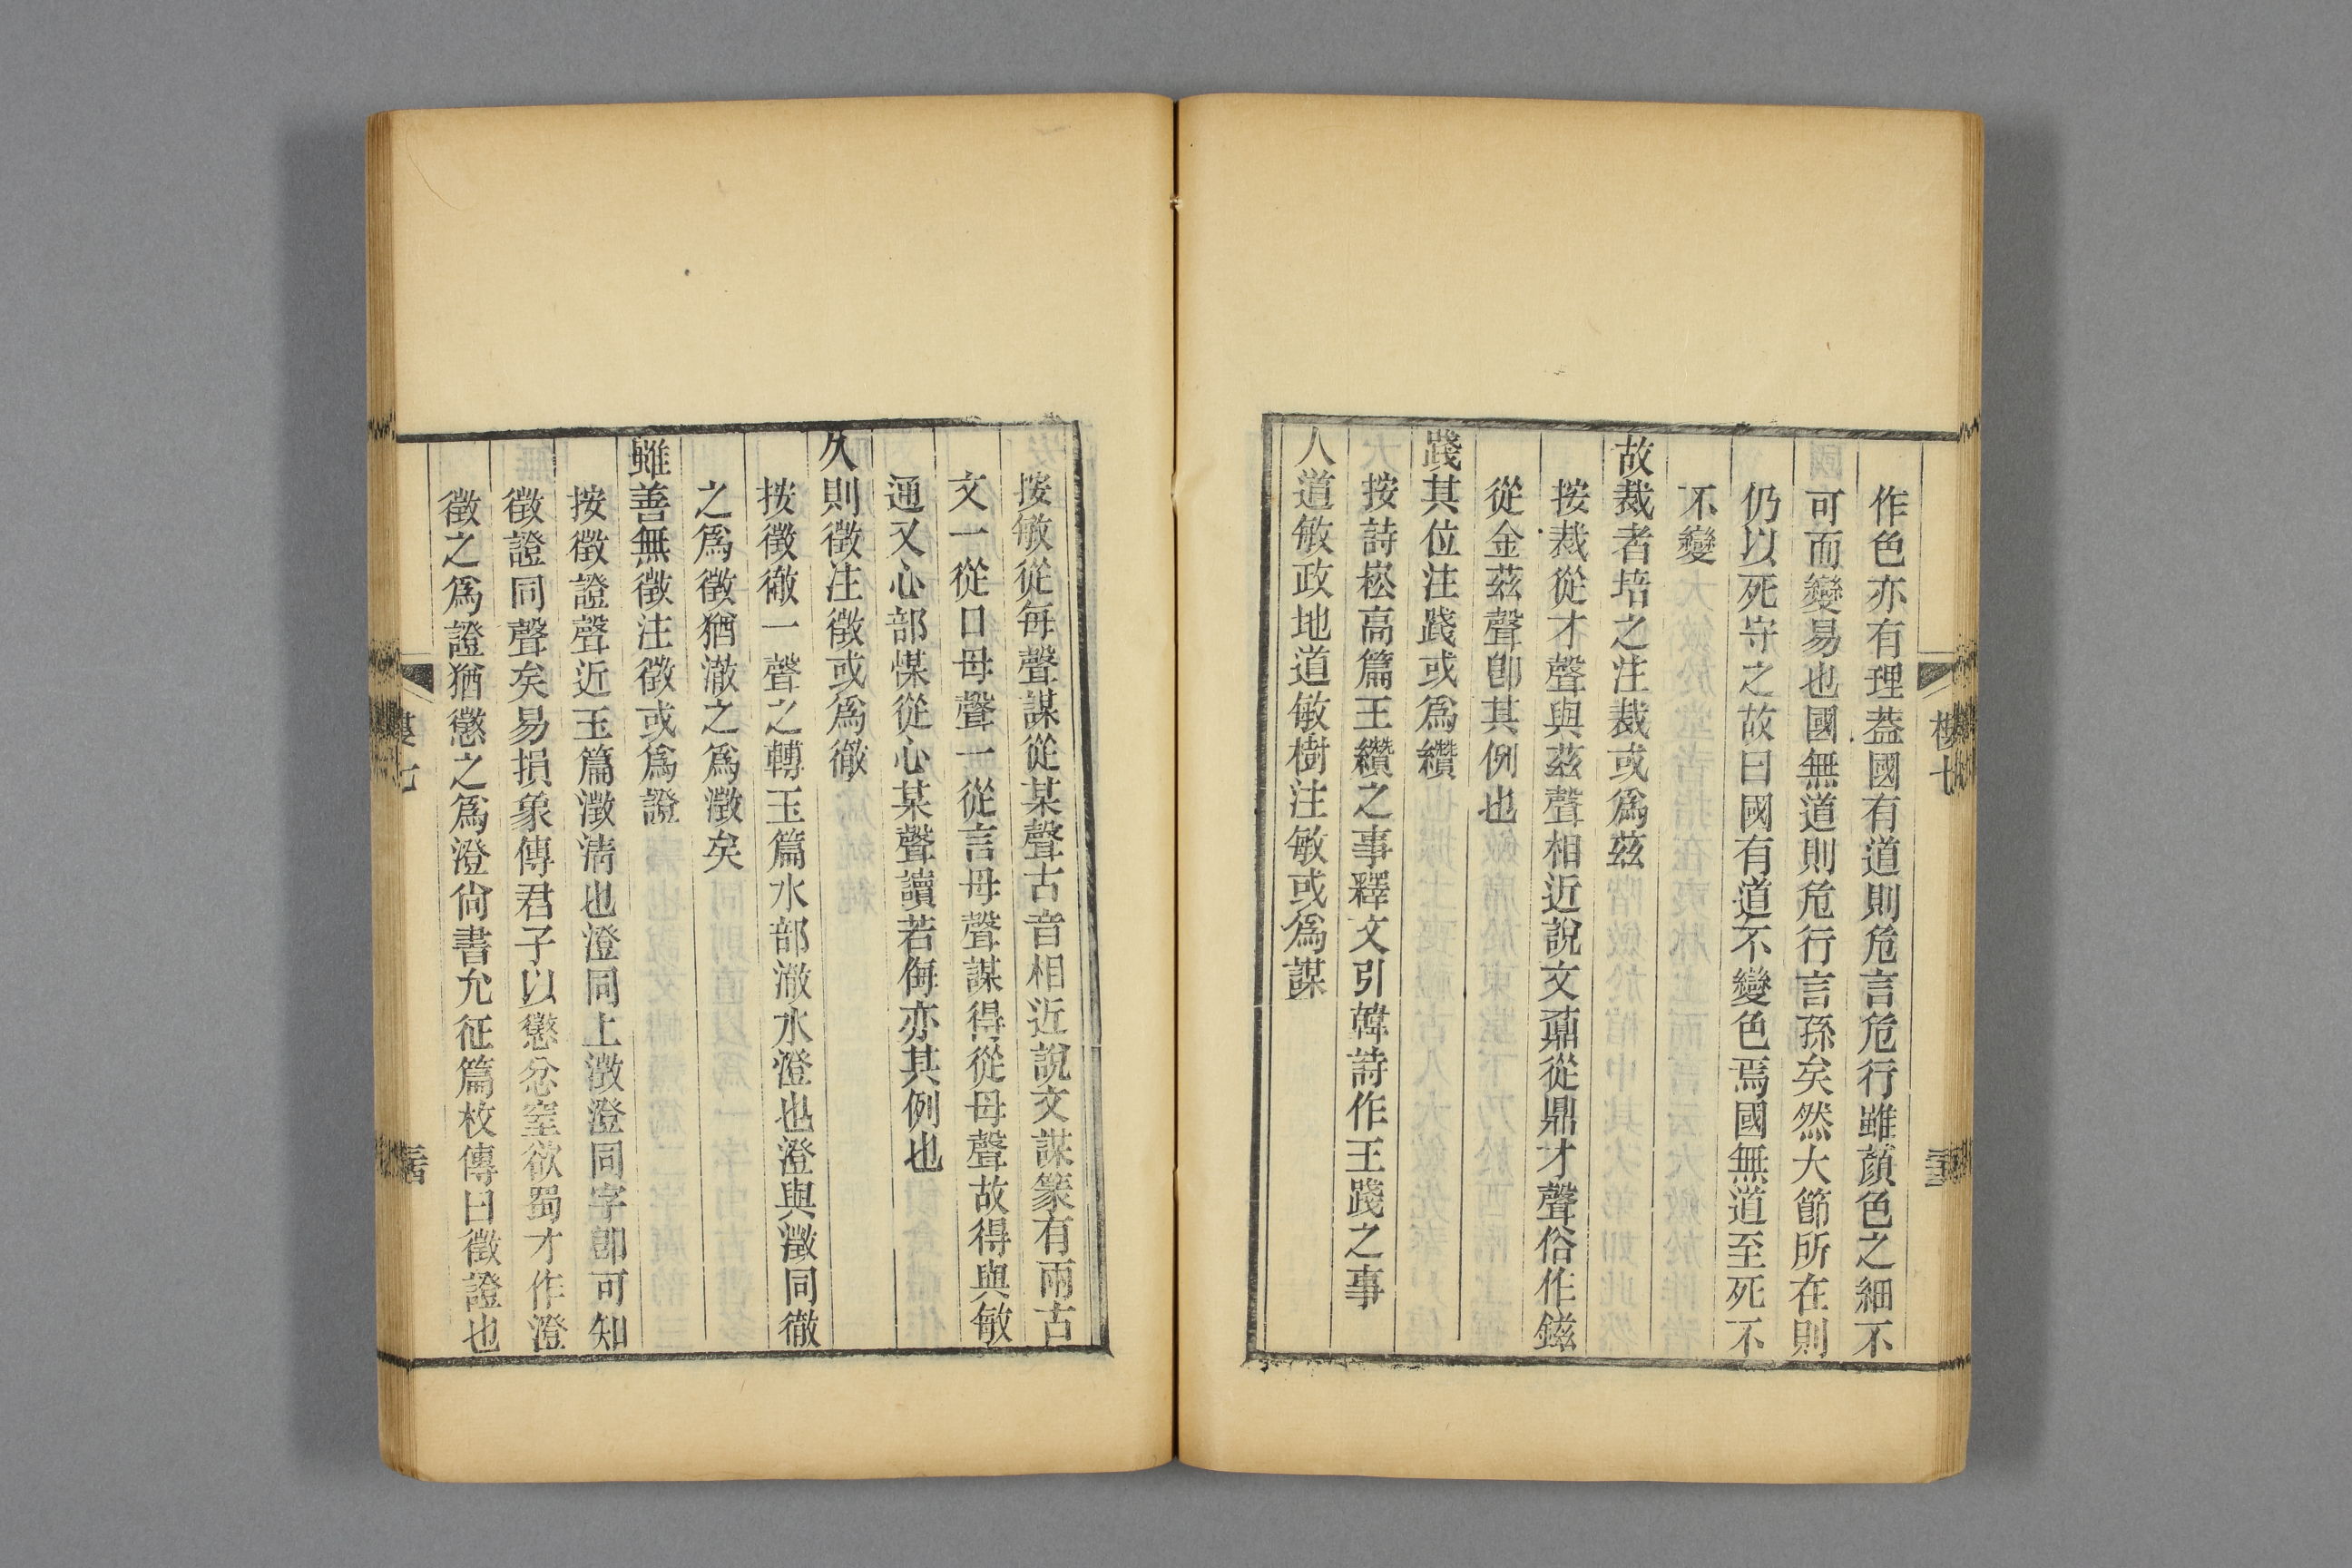 作色亦有理葢國有道則危言危行雖顔色之細不
可而變易也國無道則危行言孫矣然大節所在則
仍以死守之故曰國有道不變色焉國無道至死不
不變
故裁者培之注裁或爲茲
按裁從才聲與茲聲相近說文鼒從鼎才聲俗作鎡
從金茲聲卽其例也
踐其位注踐或爲纘
按詩崧高篇王纘之事釋文引韓詩作王踐之事
人道敏政地道敏樹注敏或爲謀
按敏從每聲謀從某聲古音相近說文謀篆有兩古
文一從口母聲一從言母聲謀得從母聲故得與敏
通又心部惎從心某聲讀若侮亦其例也
久則徵注徵或爲徹
按徵徹一聲之轉玉篇水部澈水澄也澄與澂同徹
之爲徵猶澈之爲澂矣
雖善無徵注徵或爲證
按徵證聲近玉篇澂淸也澄同上澂澄同字卽可知
徵證同聲矣易損象傳君子以懲忿窒欲蜀才作澄
徵之爲證猶懲之爲澄尙書允征篇枚傳曰徵證也